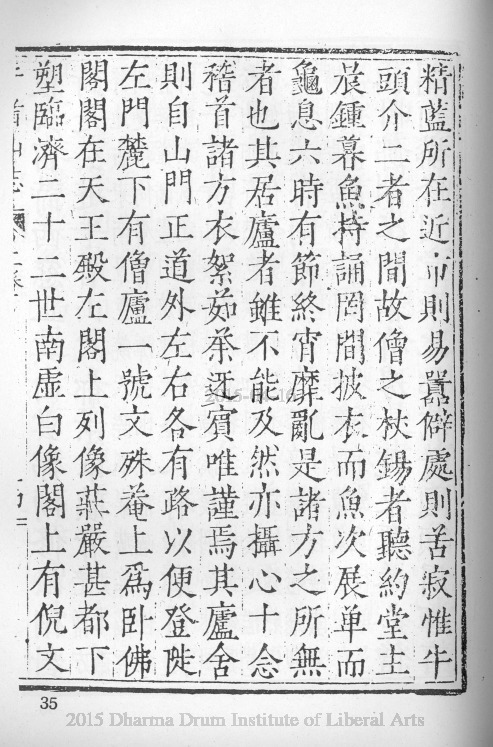 精藍所在近市則易囂僻處則苦寂惟牛
頭介二者之間故僧之杖錫者聽約堂主
晨鍾暮魚持誦罔間披衣而魚次展单而
龜息六時有節終宵靡亂是諸方之所無
者也其居廬者雖不能及然亦攝心十念
稽首諸方衣絮茹茶迓賓唯謹焉其廬舍
則自山門正道外左右各有路以便登陟
左門麓下有僧廬一號文殊菴上為卧佛
閣閣在天王殿左閣上列像莊嚴甚都下
塑臨濟二十二世南虛白像閣上有倪文
牛首山志
35
2015 Dharma Drum Institute of Liberal Arts